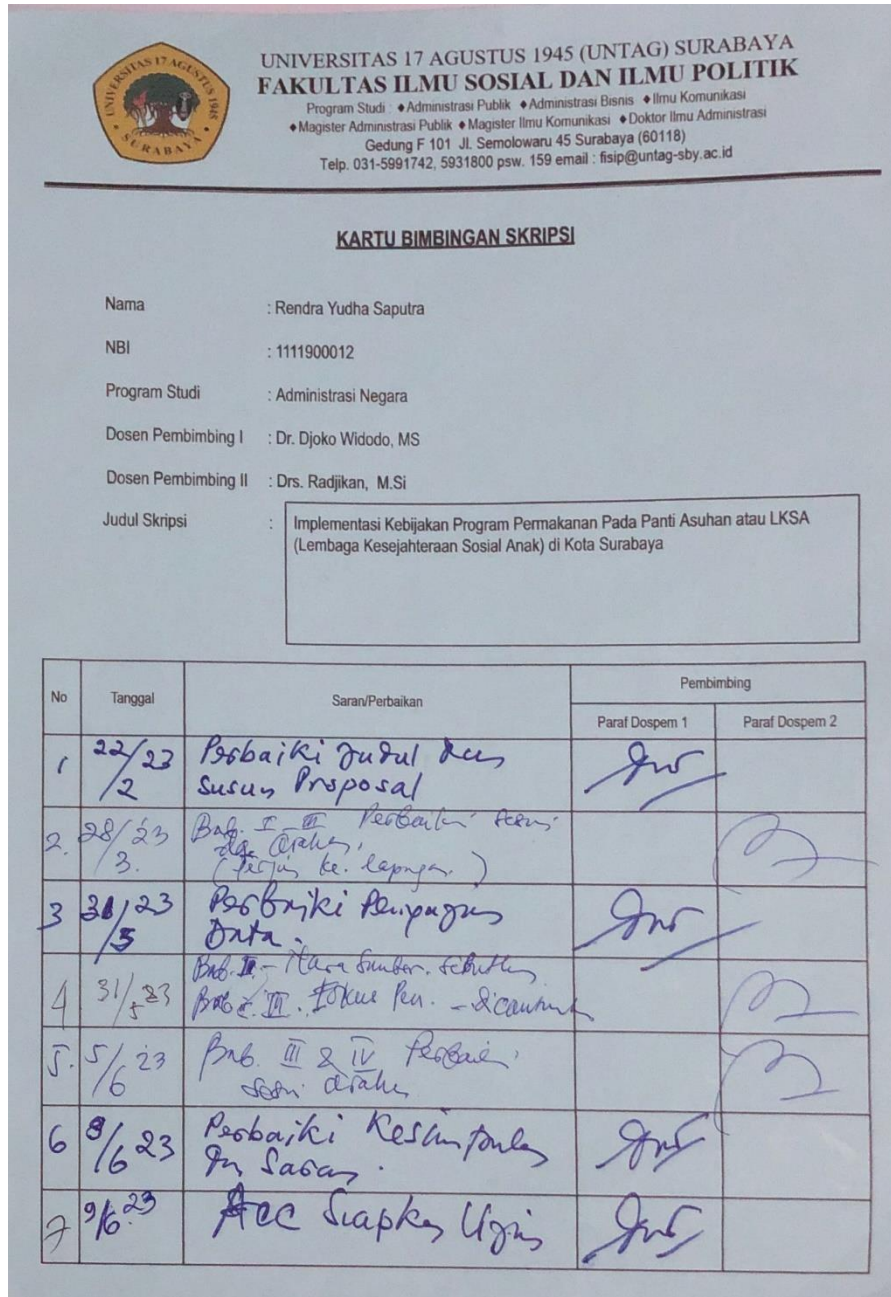 UNIVERSITAS 17 AGUSTUS 1945
SURABAYA
UNIVERSITAS 17 AGUSTUS 1945 (UNTAG) SURABAYA
FAKULTAS ILMU SOSIAL DAN ILMU POLITIK
Program Studi : ♦Administrasi Publik ♦Administrasi Bisnis ♦Ilmu Komunikasi
♦Magister Administrasi Publik ♦Magister Ilmu Komunikasi ♦Doktor Ilmu Administrasi
Gedung F 101 Jl. Semolowaru 45 Surabaya (60118)
Telp. 031-5991742, 5931800 psw. 159 email : fisip@untag-sby.ac.id
KARTU BIMBINGAN SKRIPSI
Nama : Rendra Yudha Saputra
NBI : 1111900012
Program Studi : Administrasi Negara
Dosen Pembimbing I : Dr. Djoko Widodo, MS
Dosen Pembimbing II : Drs. Radjikan, M.Si
Judul Skripsi : Implementasi Kebijakan Program Permakanan Pada Panti Asuhan atau LKSA
(Lembaga Kesejahteraan Sosial Anak) di Kota Surabaya
No Tanggal Saran/Perbaikan Pembimbing
Paraf Dospem 1 Paraf Dospem 2
1 22/2 23 Perbaiki Judul dan
Susun Proposal
2. 28/3. 23 Bab. I - III Perbaiki sesuai
arahan,
ke lapangan.)
3 31/5 23 Perbaiki
Data.
4 31/5 23 Bab. II - Nara Sumber.
Bab. III. Fokus Pen.
5. 5/6 23 Bab. III & IV Perbaiki
sesuai arahan
6 8/6 23 Perbaiki Kesimpulan
dn Saran.
7 9/6 23 Acc Siapkan Ujian